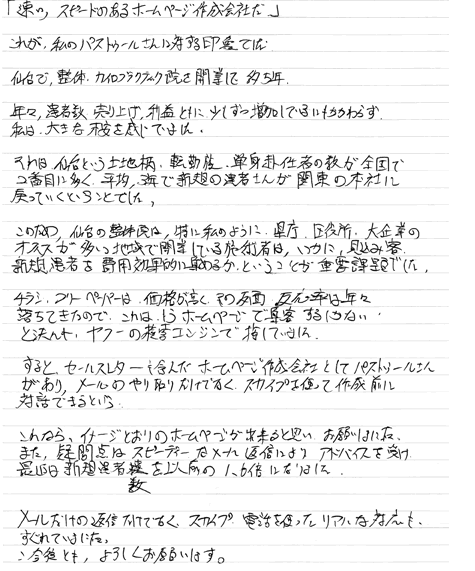 「速い、スピードのあるホームページ作成会社だ」
これが、私のパストゥールさんに対する印象でした
仙台で、整体・カイロプラクティック院を開業して 約5年。
年々、患者数、売り上げ、利益ともに 少しずつ増加しているにもかかわらず
私は、大きな不安を感じていました。
それは 仙台という土地柄、転勤族、単身赴任者の数が全国で
2番目に多く、平均、3年で新規の患者さんが 関東の本社に
戻っていくということでした。
このため、仙台の整体院は、特に私のように、県庁、区役所、大企業の
オフィスが多い地域で開業している施術者は、いかに、見込み客、
新規患者を 費用効率的に集めるか、ということが重要課題でした。
チラシ、フリーペーパーは、価格が高く、その反面 反応率は年々
落ちてきたので、これは、もう ホームページで集客するしかない
と決心し、ヤフーの検索エンジンで 探していました。
すると、セールスレターを含んだ ホームページ作成会社として パストゥールさん
があり、メールのやり取りだけでなく、スカイプを使って作成前に
対話できるという。
これなら、イメージどおりのホームページが出来ると思い、お願いしました。
また、疑問点は スピーディーなメール返信により アドバイスを受け
最近は新規患者様数を以前の 1.6倍になりました。
メールだけの返信だけでなく、スカイプ、電話を使ったリアルな対応も、
すぐれていました。
今後とも、よろしくお願いします。